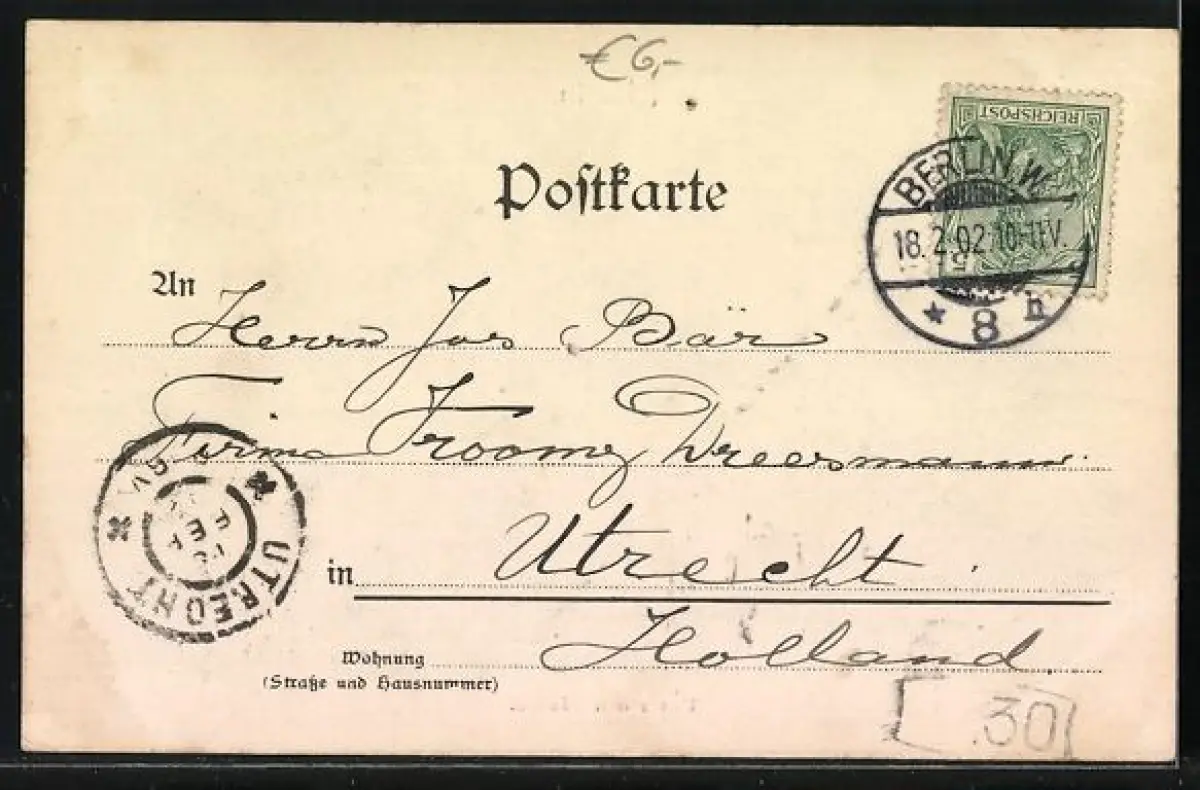 €6,-
REICHSPOST
Postkarte
BERLIN.W.
18.2.02.10-11V.
* 8 h
An Herrn Jos Bär
Firma Vroom & Dreesmann
in Utrecht
Holland
UTRECHT
Wohnung
(Straße und Hausnummer)
30